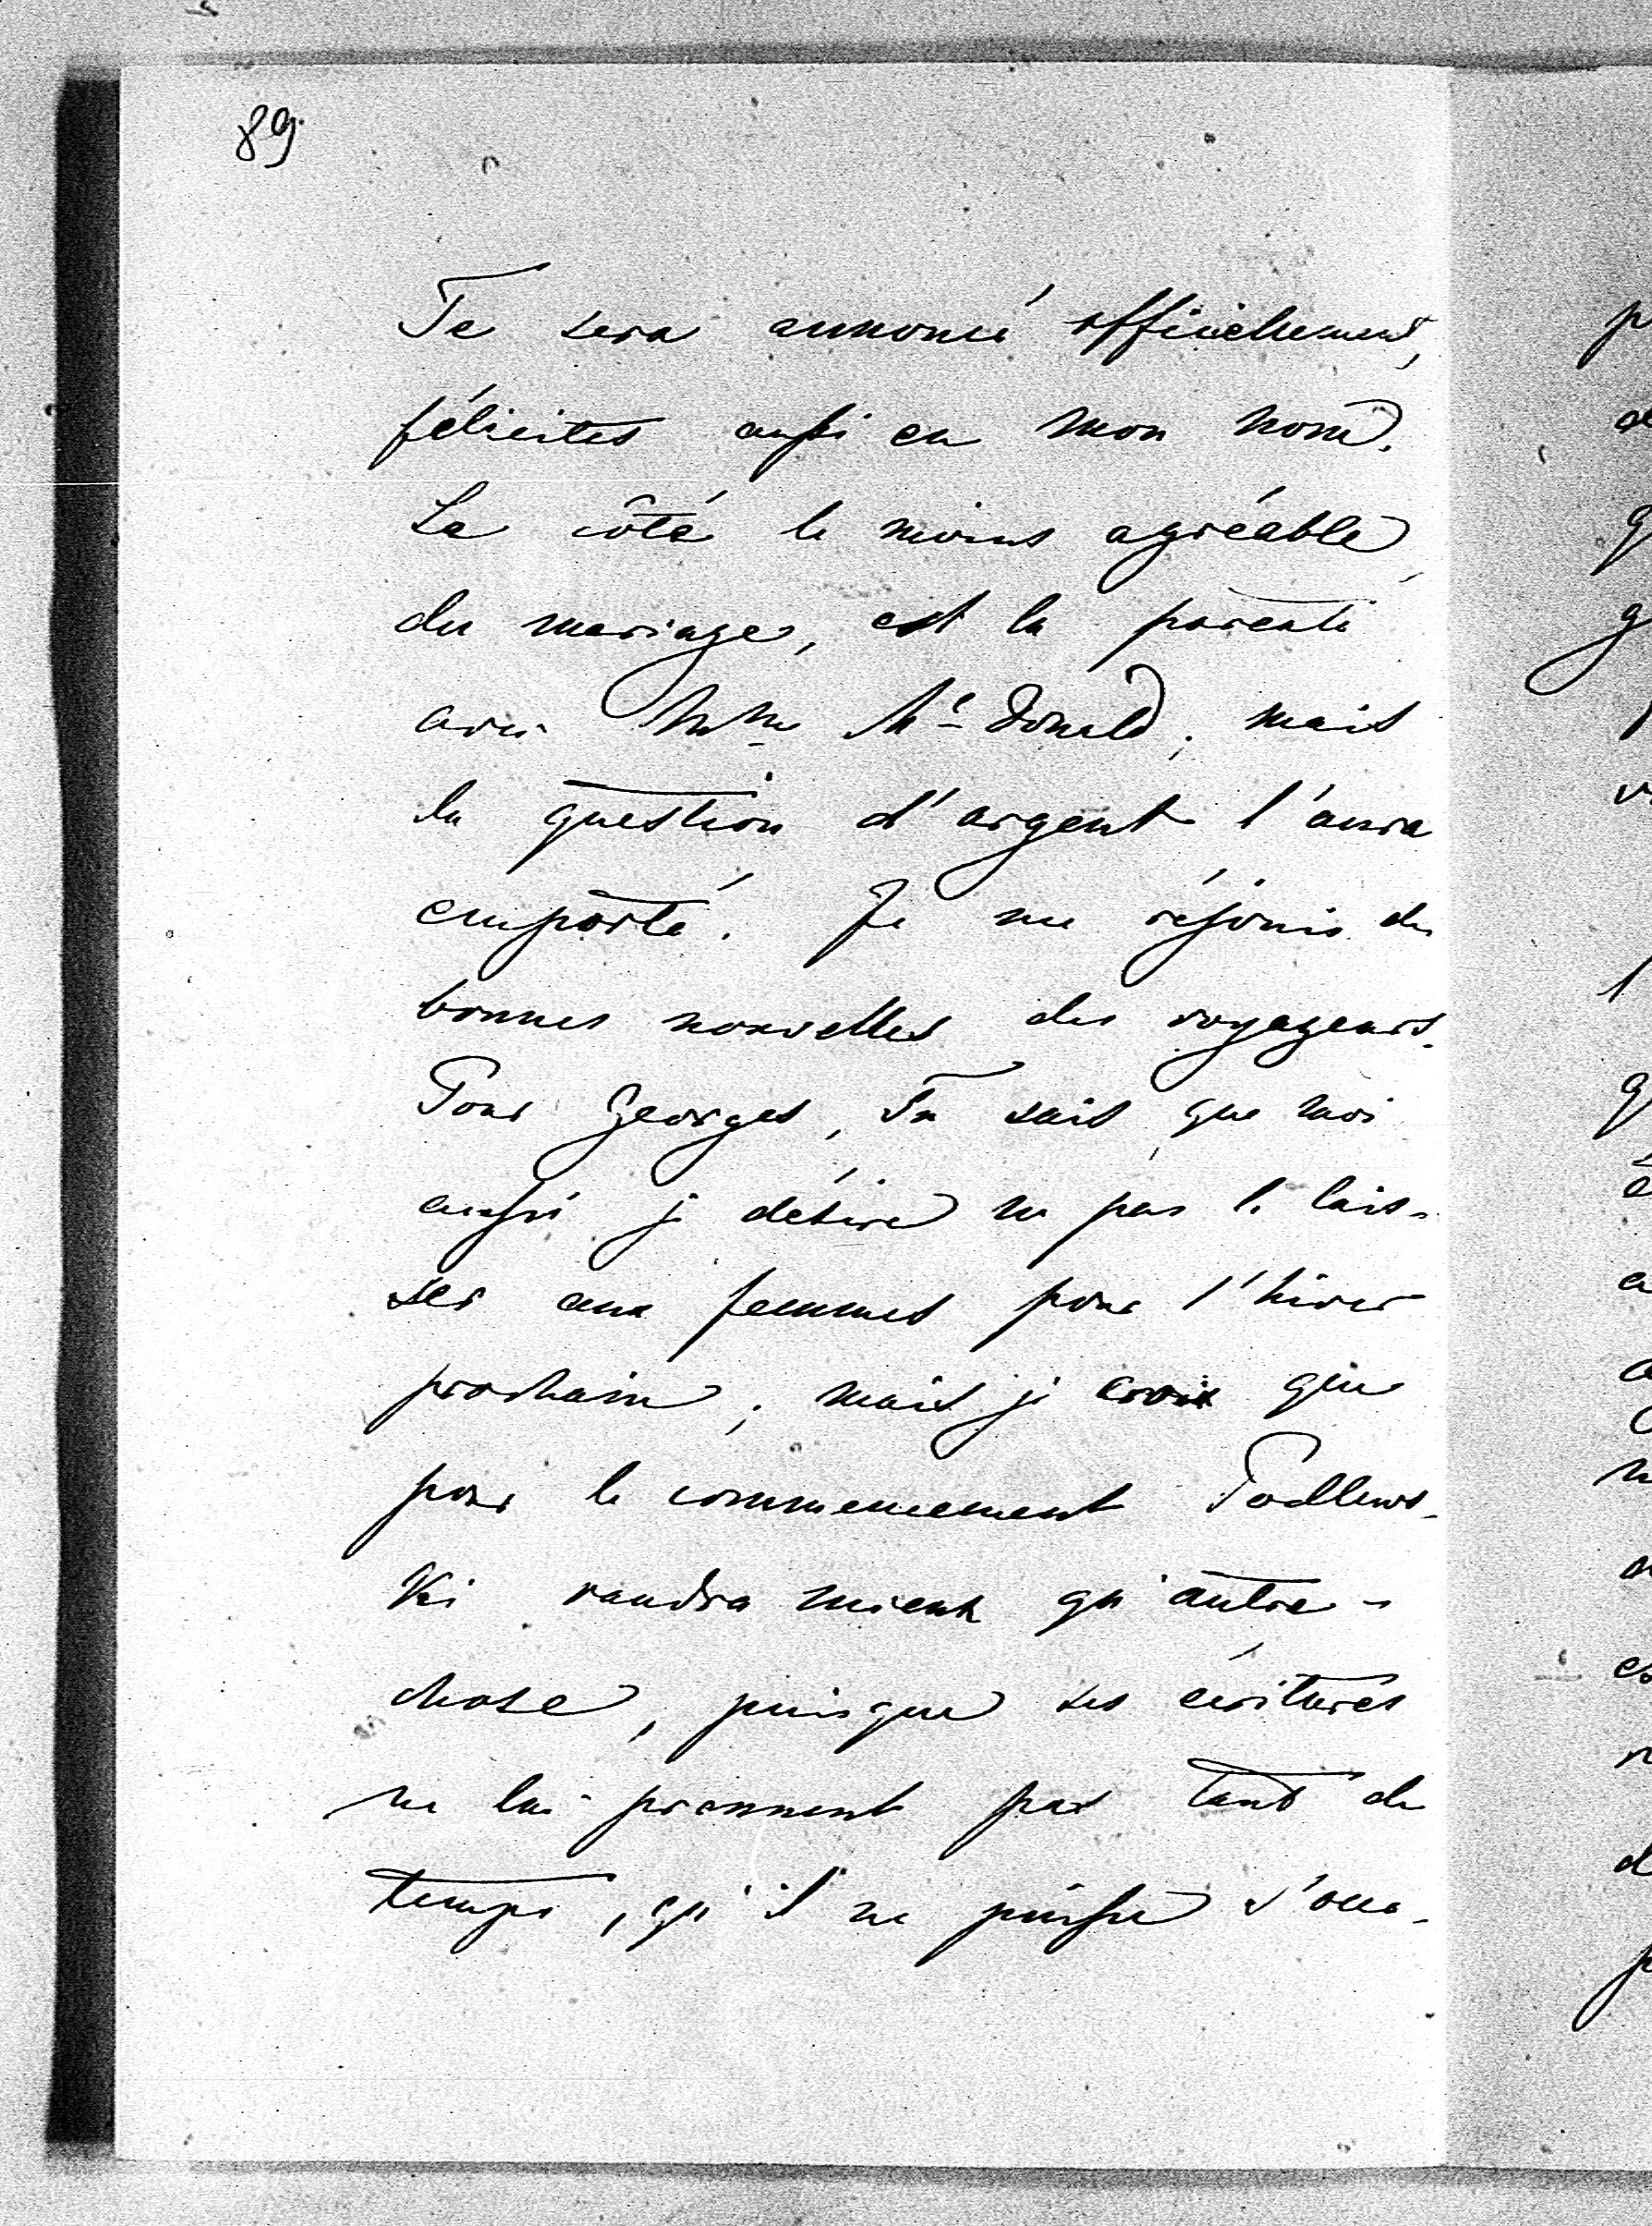 89.
Te sera annoncé officiellement,
félicites aussi en mon nom.
Le côté le moins agréable
du mariage, est la parenté
avec Mme Mc Donald; mais
la question d'argent l'aura
emporté. Je me réjouis des
bonnes nouvelles des voyageurs.
Pour Georges, Tu sais que moi
aussi je désire ne pas le lais-
ser aux femmes pour l'hiver
prochain; mais je crois que
pour le commencement Podlews-
Ki vaudra mieux qu'autre-
chose, puisque ses écritures
ne lui prennent pas tant de
temps, qu'il ne puisse s'occu-